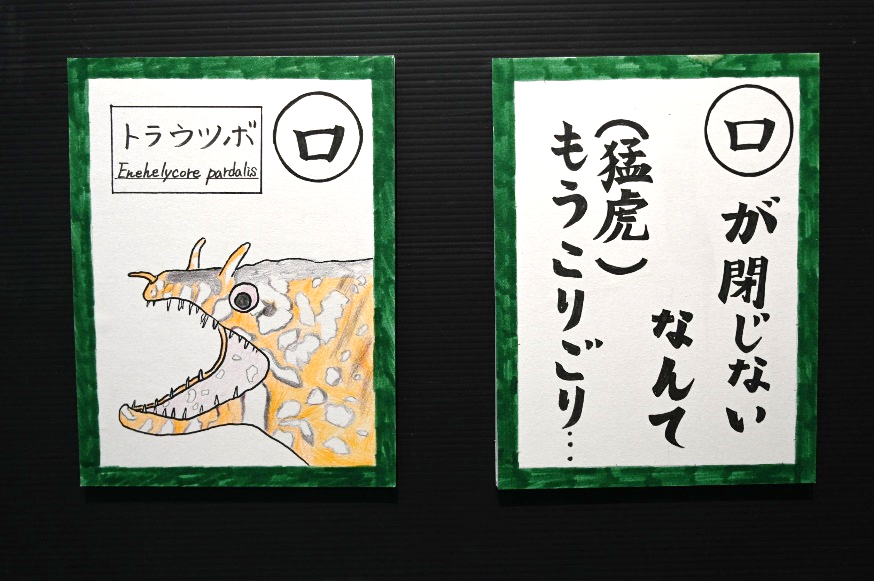 トラウツボ
Enehelycore pardalis
口
口
が閉じない
なんて
(猛虎)
もうこりごり…